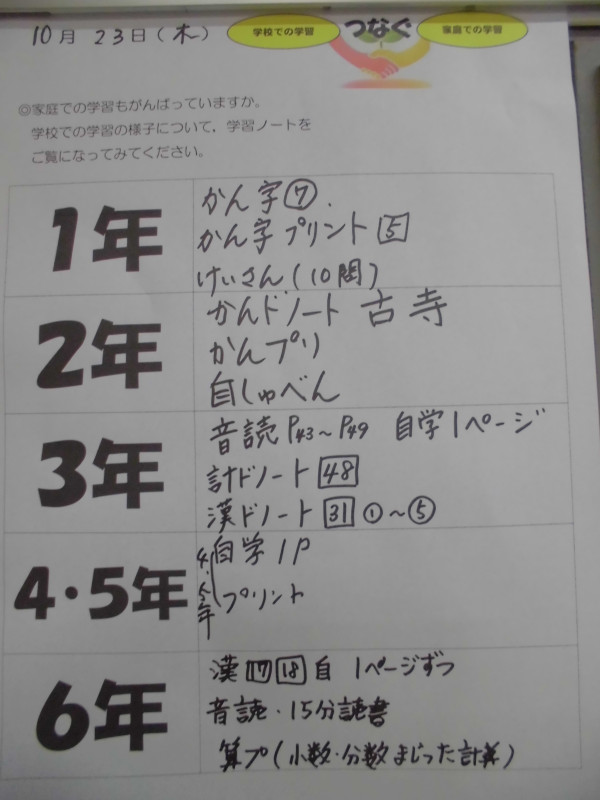 10月 23日(木)
学校での学習 つなぐ 家庭での学習
◎家庭での学習もがんばっていますか。
学校での学習の様子について、学習ノートを
ご覧になってみてください。
1年
かん字⑦.
かん字プリント5
けいさん(10問)
2年
かんドノート 古寺
かんプリ
自しゅべん
3年
音読 P43~P49 自学1ページ
計ドノート48
漢ドノート31①~⑤
4・5年
4・5年
自学1P
プリント
6年
漢17 18 自 1ページずつ
音読・15分読書
算プ(小数・分数まじった計算)